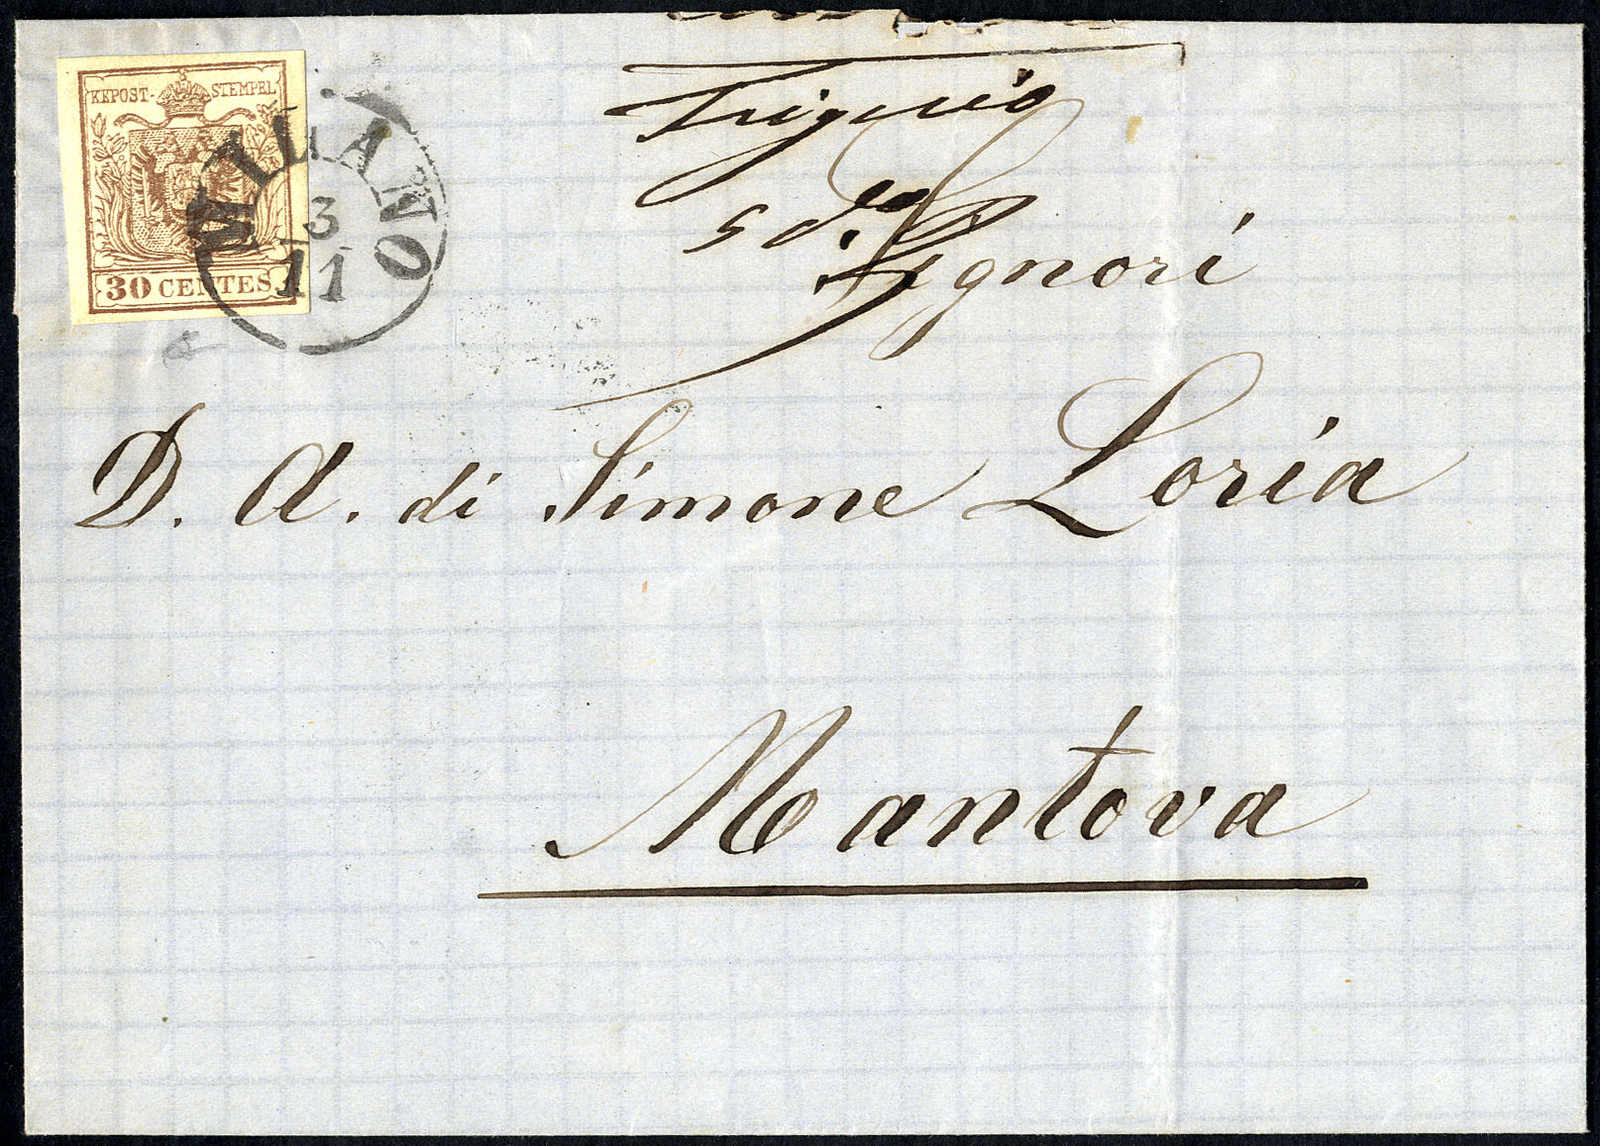 KKPOST-STEMPEL
30 CENTES
MILANO
3
11
Signori
D. A. di Simone Loria
Mantova